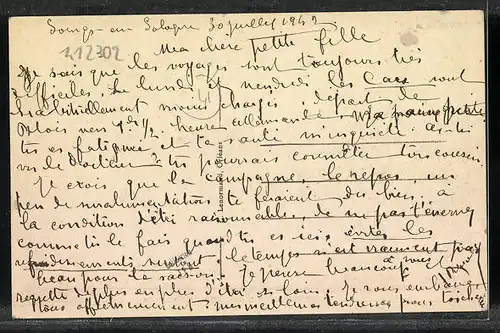 Soings-en-Sologne 30 juillet 1942
412302
Ma chère petite fille
Je sais que les voyages sont toujours très
difficiles. Le lundi et vendredi les Cars sont
habituellement moins chargés, départ de
Blois vers 4h 1/2 heure allemande Ma pauvre petite
tu es fatiguée et ta santé m'inquiète. As-tu
vu le Docteur tu pourrais consulter ton cousin.
Je crois que la campagne, le repos, un
peu de suralimentation te feraient du bien, à
la condition d'être raisonnable, de ne pas t'énerver
comme tu le fais quand tu es ici, éviter les
refroidissements surtout, le temps n'est vraiment pas
beau pour la saison. Je pense beaucoup à vous et
regrette de plus en plus d'être si loin. Je vous embrasse
tous affectueusement mes meilleures tendresses pour toi
Lenormand, Orléans